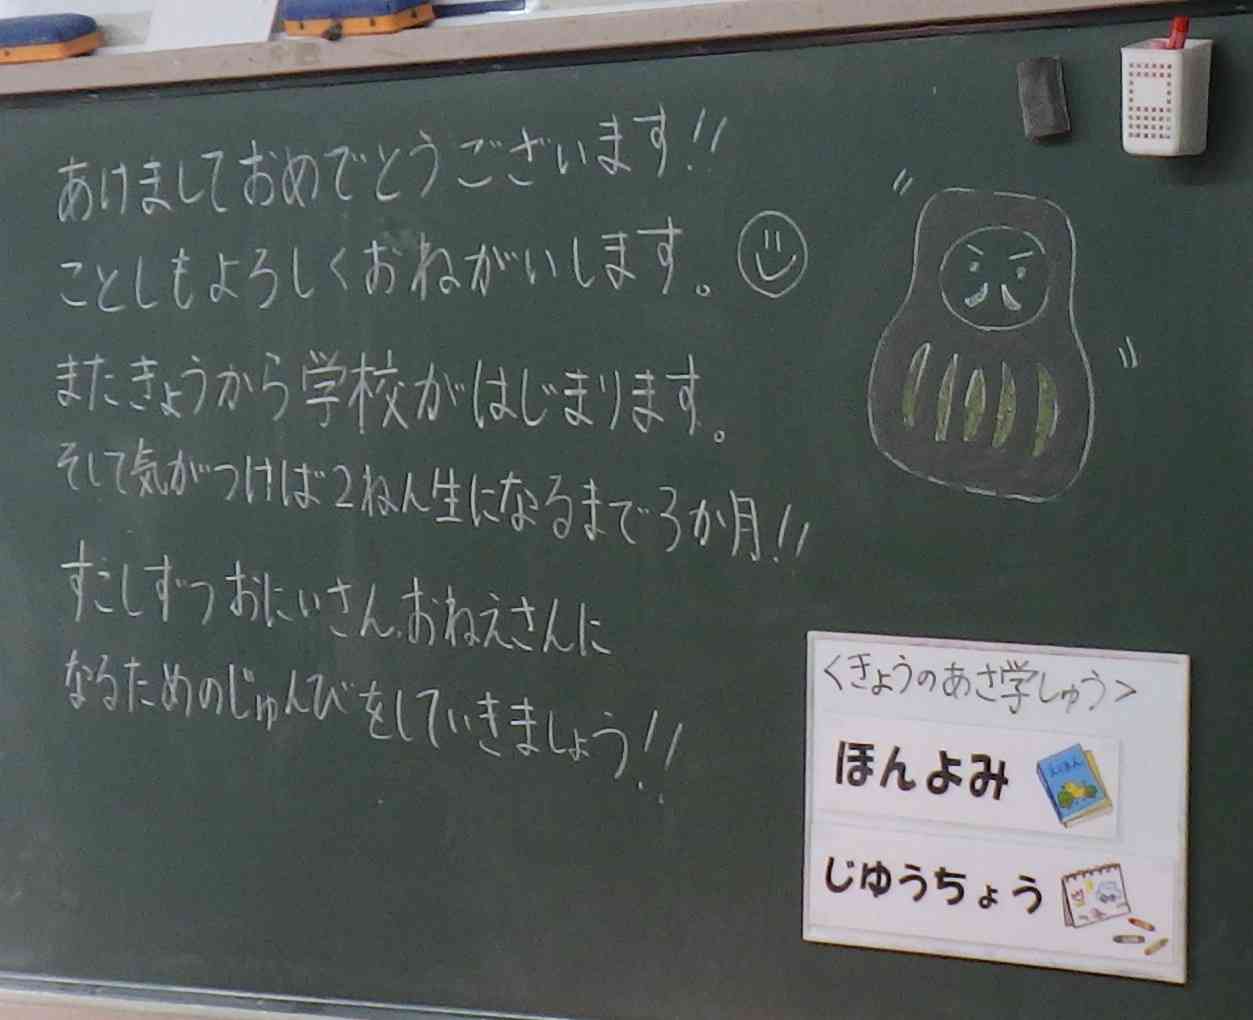 あけましておめでとうございます!!
ことしもよろしくおねがいします。
またきょうから学校がはじまります。
そして気がつけば2ねん生になるまで3か月!!
すこしずつおにいさん、おねえさんに
なるためのじゅんびをしていきましょう!!
＜きょうのあさ学しゅう＞
ほんよみ
じゆうちょう